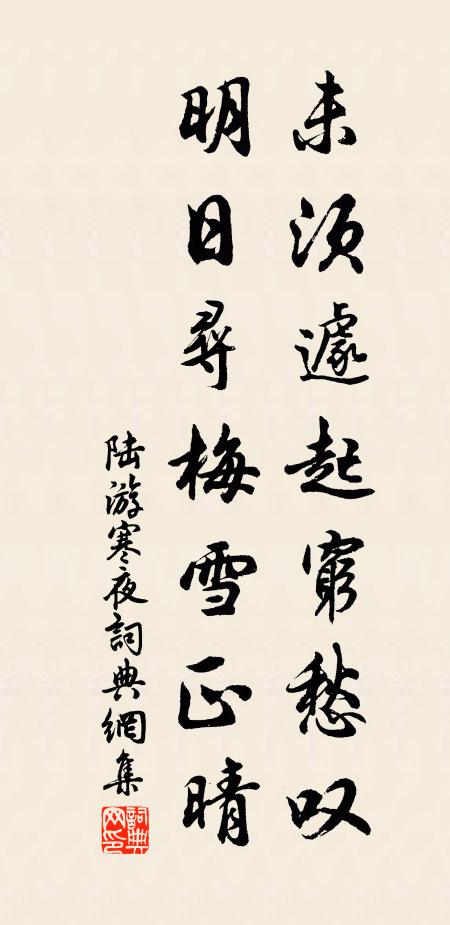 未須遽起窮愁叹
明日尋梅雪正晴
陸游寒夜詞典網集
詞典网印